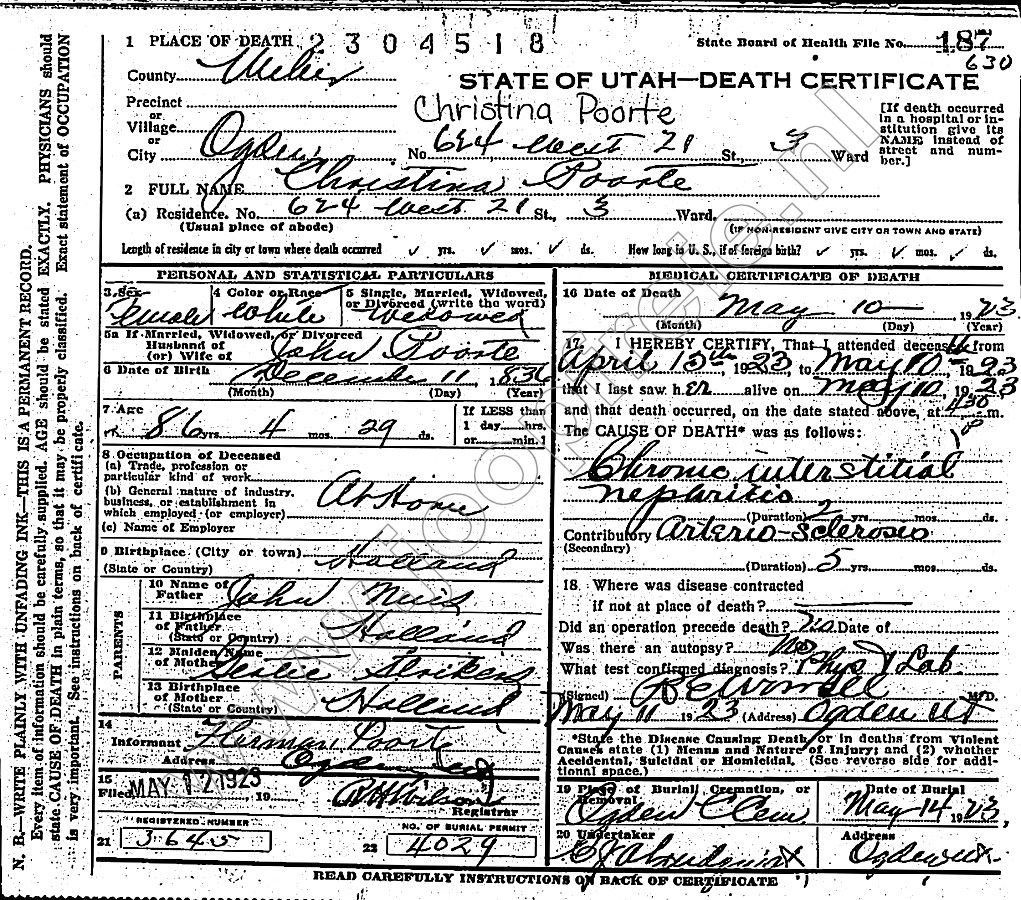 1 PLACE OF DEATH 2304518 State Board of Health File No. 187
630
County Weber
STATE OF UTAH—DEATH CERTIFICATE
Precinct
or
Village
or
City Ogden, No. 624 West 21 St., 3 Ward
Christina Poorte
[If death occurred in a hospital or institution give its NAME instead of street and number.]
2 FULL NAME Christina Poorte
(a) Residence. No. 624 West 21 St., 3 Ward,
(Usual place of abode) (IF NON-RESIDENT GIVE CITY OR TOWN AND STATE)
Length of residence in city or town where death occurred ✓ yrs. ✓ mos. ✓ ds. How long in U. S., if of foreign birth? ✓ yrs. ✓ mos. ✓ ds.
PERSONAL AND STATISTICAL PARTICULARS
3 Sex Female
4 Color or Race White
5 Single, Married, Widowed, or Divorced (write the word) Widowed
5a If Married, Widowed, or Divorced
Husband of
(or) Wife of John Poorte
6 Date of Birth December 11, 1836
(Month) (Day) (Year)
7 Age 86 yrs. 4 mos. 29 ds.
If LESS than
1 day hrs.
or min. 1
8 Occupation of Deceased
(a) Trade, profession or
particular kind of work
(b) General nature of industry,
business, or establishment in
which employed (or employer)
At Home
(c) Name of Employer
9 Birthplace (City or town)
(State or Country) Holland
PARENTS
10 Name of
Father John
11 Birthplace
of Father
(State or Country) Holland
12 Maiden Name
of Mother Strikers
13 Birthplace
of Mother
(State or Country) Holland
14
Informant Herman Poorte
Address Ogden Ut
15
Filed MAY 12 1923, 19 R H Wilson
Registrar
REGISTERED NUMBER
21 3645
NO. OF BURIAL PERMIT
22 4029
MEDICAL CERTIFICATE OF DEATH
16 Date of Death May 10 1923
(Month) (Day) (Year)
17 I HEREBY CERTIFY, That I attended deceased from
April 15th 1923, to May 10th 1923
that I last saw her alive on May 10, 1923
and that death occurred, on the date stated above, at 430 m.
The CAUSE OF DEATH* was as follows:
Chronic interstitial
nephritis
(Duration) 2 yrs. mos. ds.
Contributory Arterio-sclerosis
(Secondary)
(Duration) 5 yrs. mos. ds.
18. Where was disease contracted
if not at place of death?
Did an operation precede death? No Date of
Was there an autopsy? No
What test confirmed diagnosis? Phys & Lab
(Signed) M.D.
May 11 1923 (Address) Ogden Ut
*State the Disease Causing Death, or in deaths from Violent
Causes state (1) Means and Nature of Injury; and (2) whether
Accidental, Suicidal or Homicidal. (See reverse side for additional space.)
19 Place of Burial, Cremation, or
Removal Ogden Cem
Date of Burial
May 14 1923,
20 Undertaker
Address
Ogden Ut.
READ CAREFULLY INSTRUCTIONS ON BACK OF CERTIFICATE
N. B.—WRITE PLAINLY WITH UNFADING INK—THIS IS A PERMANENT RECORD.
Every item of information should be carefully supplied. AGE should be stated EXACTLY. PHYSICIANS should
state CAUSE OF DEATH in plain terms, so that it may be properly classified. Exact statement of OCCUPATION
is very important. See instructions on back of certificate.